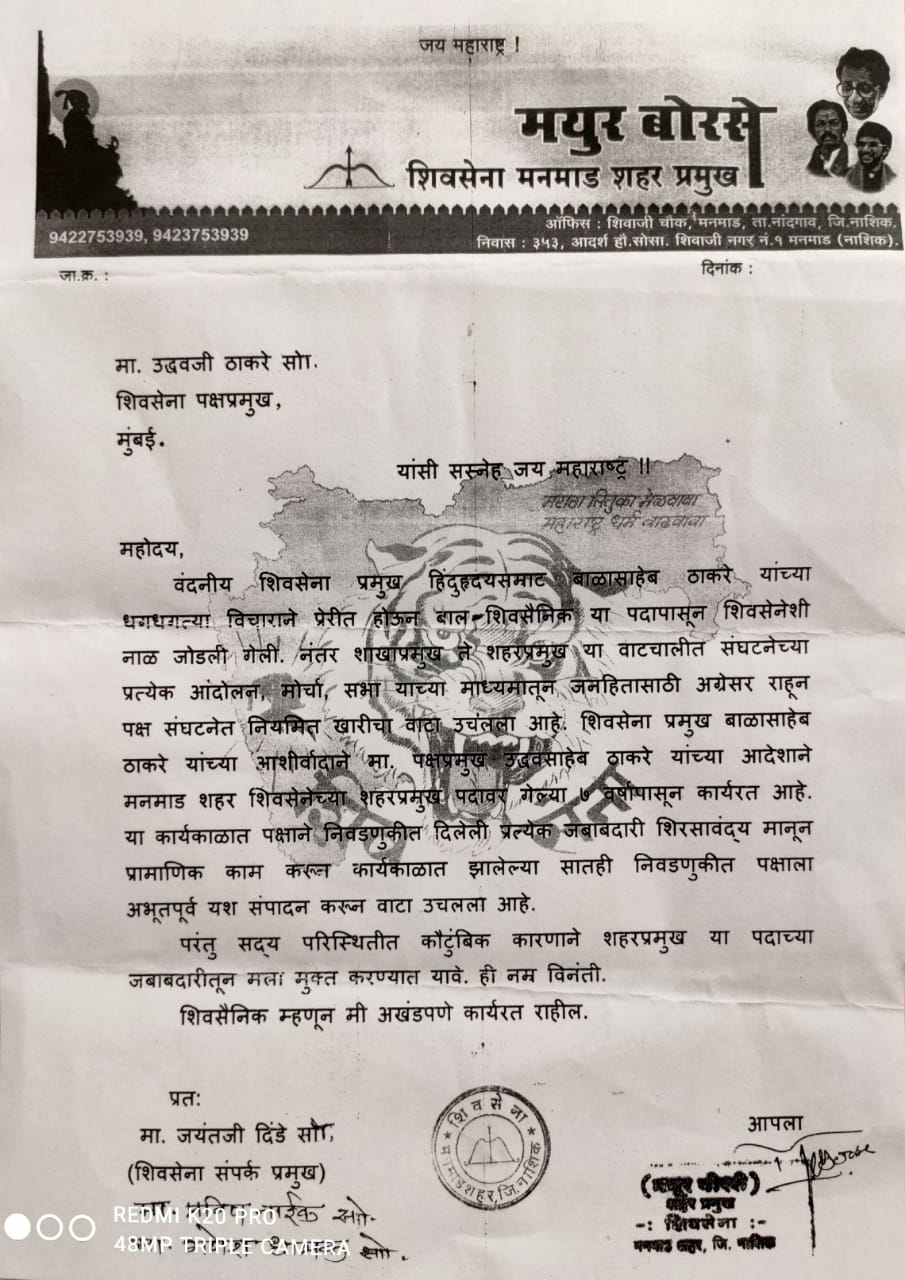 जय महाराष्ट्र !
मयुर बोरसे
शिवसेना मनमाड शहर प्रमुख
9422753939, 9423753939
ऑफिस : शिवाजी चौक, मनमाड, ता.नांदगाव, जि.नाशिक.
निवास : ३५३, आदर्श हौ.सोसा. शिवाजी नगर नं.१ मनमाड (नाशिक).
जा.क्र. :
दिनांक :
मा. उद्धवजी ठाकरे सो॥.
शिवसेना पक्षप्रमुख,
मुंबई.
यांसी सस्नेह जय महाराष्ट्र !!
मराठा तितुका मेळवावा
महाराष्ट्र धर्म वाढवावा
महोदय,
वंदनीय शिवसेना प्रमुख हिंदुहृदयसम्राट बाळासाहेब ठाकरे यांच्या
धगधगत्या विचाराने प्रेरीत होऊन बाल-शिवसैनिक या पदापासून शिवसेनेशी
नाळ जोडली गेली. नंतर शाखाप्रमुख ते शहरप्रमुख या वाटचालीत संघटनेच्या
प्रत्येक आंदोलन, मोर्चा, सभा याच्या माध्यमातून जनहितासाठी अग्रेसर राहून
पक्ष संघटनेत नियमित खारीचा वाटा उचलला आहे. शिवसेना प्रमुख बाळासाहेब
ठाकरे यांच्या आशीर्वादाने मा. पक्षप्रमुख उद्धवसाहेब ठाकरे यांच्या आदेशाने
मनमाड शहर शिवसेनेच्या शहरप्रमुख पदावर गेल्या ७ वर्षापासून कार्यरत आहे.
या कार्यकाळात पक्षाने निवडणुकीत दिलेली प्रत्येक जबाबदारी शिरसावंद्य मानून
प्रामाणिक काम करून कार्यकाळात झालेल्या सातही निवडणुकीत पक्षाला
अभूतपूर्व यश संपादन करून वाटा उचलला आहे.
परंतु सद्य परिस्थितीत कौटुंबिक कारणाने शहरप्रमुख या पदाच्या
जबाबदारीतून मला मुक्त करण्यात यावे. ही नम्र विनंती.
शिवसैनिक म्हणून मी अखंडपणे कार्यरत राहील.
प्रत:
मा. जयंतजी दिंडे सो॥,
(शिवसेना संपर्क प्रमुख)
शिवसेना
मनमाड शहर, जि. नाशिक
आपला
(मयूर बोरसे)
शहर प्रमुख
-: शिवसेना :-
मनमाड शहर, जि. नाशिक
REDMI K20 PRO
48MP TRIPLE CAMERA